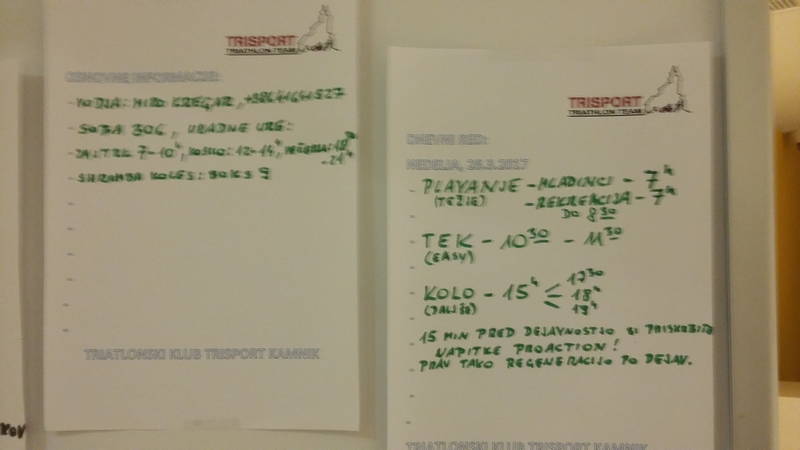 TRISPORT
TRIATHLON TEAM
OSNOVNE INFORMACIJE:
- VODJA: MIRO KREGAR, +38641641527
- SOBA 306, URADNE URE:
- ZAJTRK 7-10ʰ, KOSILO: 12-14ʰ, VEČERJA: 18³⁰
-21ʰ
- SHRAMBA KOLES: BOKS 9
TRIATLONSKI KLUB TRISPORT KAMNIK
KOV
TRISPORT
TRIATHLON TEAM
DNEVNI RED:
NEDELJA, 26.3.2017
- PLAVANJE - MLADINCI - 7ʰ
(TEŽJE) - REKREACIJA - 7ʰ
DO 8³⁰
TEK - 10³⁰ - 11³⁰
(EASY)
17³⁰
KOLO - 15ʰ < 18ʰ
(DALJŠE) 19ʰ
15 MIN PRED DEJAVNOSTJO SI PRISKRBITE
NAPITKE PROACTION!
PRAV TAKO REGENERACIJO PO DEJAV.
TRIATLONSKI KLUB TRISPORT KAMNIK